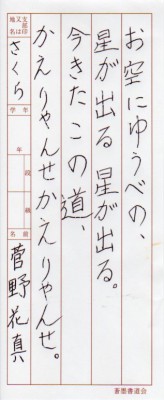 お空にゆうべの、
星が出る 星が出る。
今きたこの道、
かえりゃんせかえりゃんせ。
支部印又は地名
さくら
学年
年
段
級
名前
菅野花真
蒼墨書道会